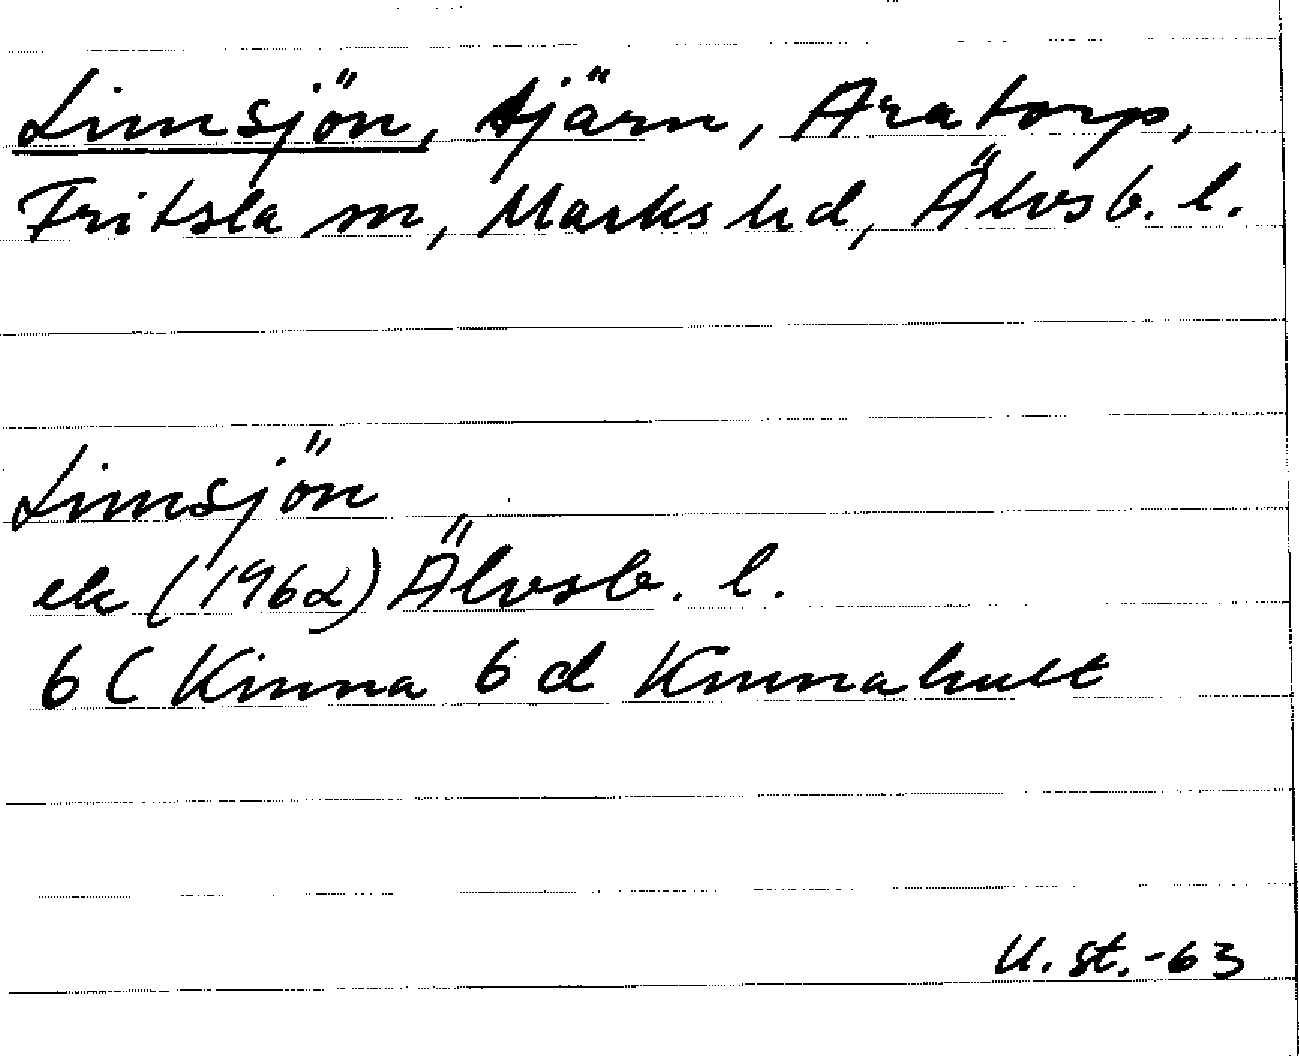 Limsjön, tjärn, Aratorp,
Fritsla sn, Marks hd, Älvsb. l.
Limsjön
ek (1962) Älvsb. l.
6 C Kinna 6 d Kinnahult
U. st. -63